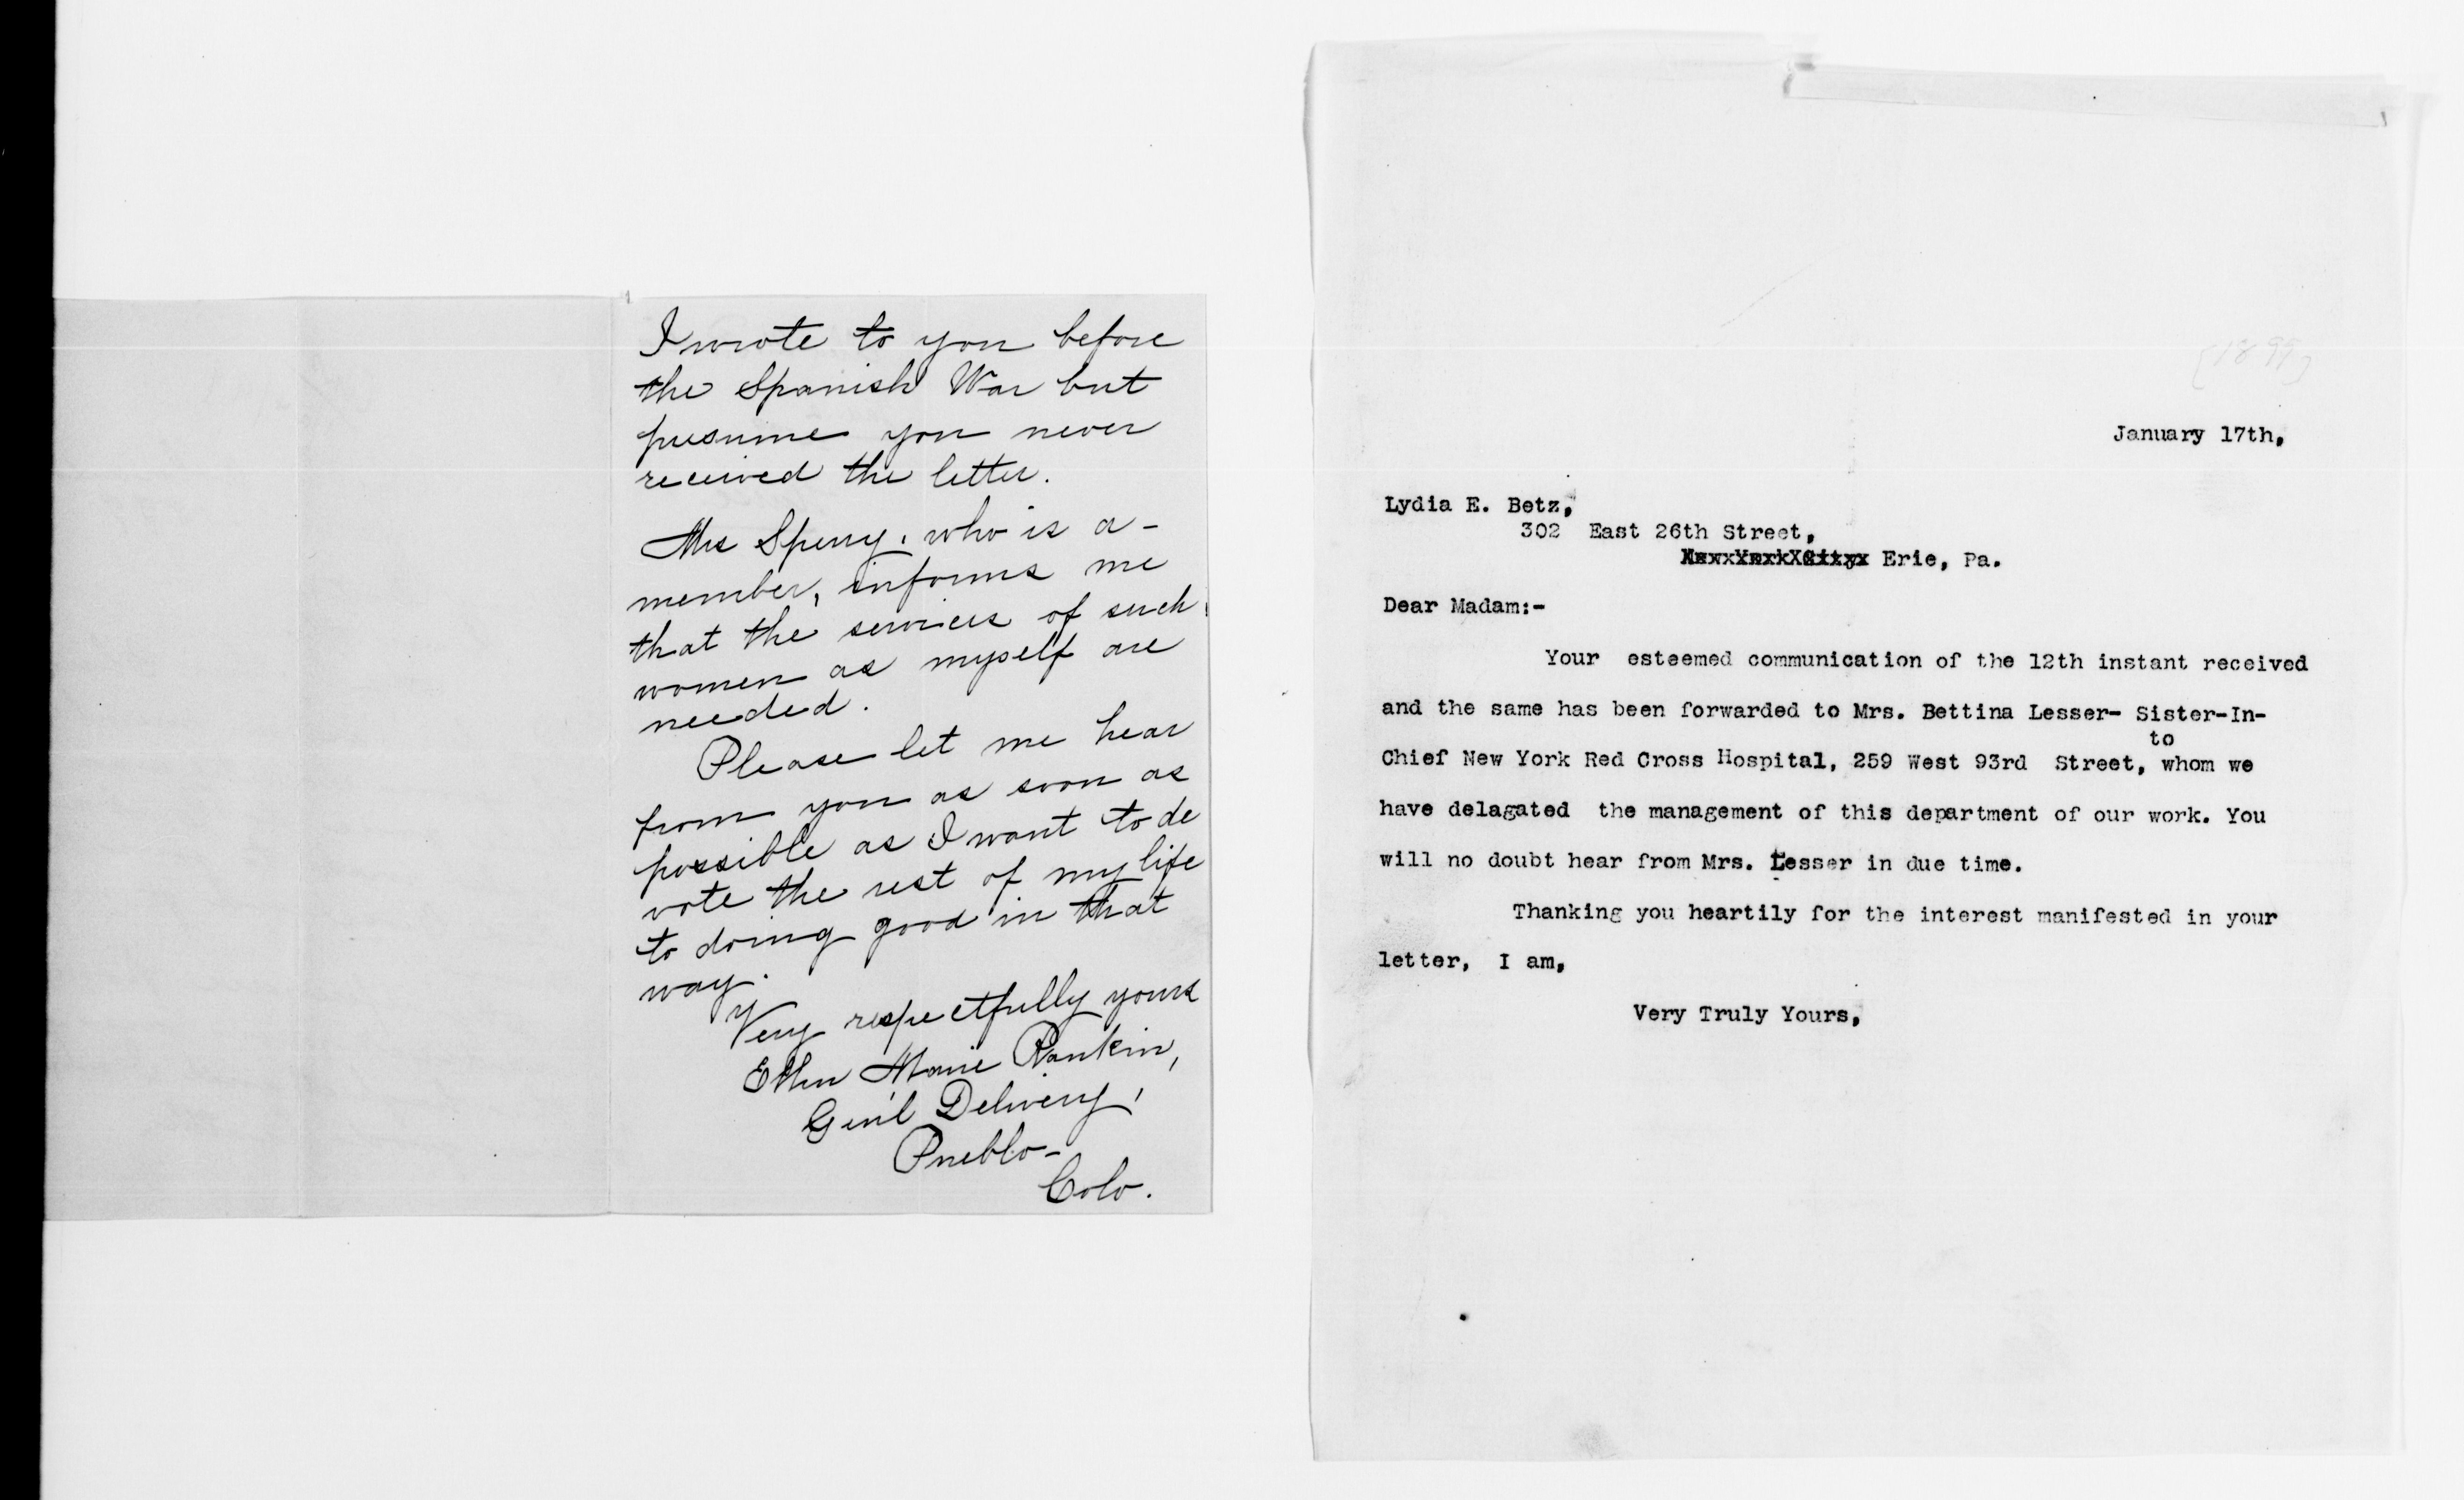 I wrote to you before
the Spanish War but
presume you never
received the letter.
Mrs Sperry, who is a-
member, informs me
that the services of such
women as myself are
needed.
Please let me hear
from you as soon as
possible as I want to de
vote the rest of my life
to doing good in that
way.
Very respectfully yours
Marie Rankin,
Gen'l Delivery,
Pueblo-
Colo.
[1899]
January 17th,
Lydia E. Betz,
302 East 26th Street,
Erie, Pa.
Dear Madam:-
Your esteemed communication of the 12th instant received
and the same has been forwarded to Mrs. Bettina Lesser- Sister-In-
to
Chief New York Red Cross Hospital, 259 West 93rd Street, whom we
have delagated the management of this department of our work. You
will no doubt hear from Mrs. Lesser in due time.
Thanking you heartily for the interest manifested in your
letter, I am,
Very Truly Yours,